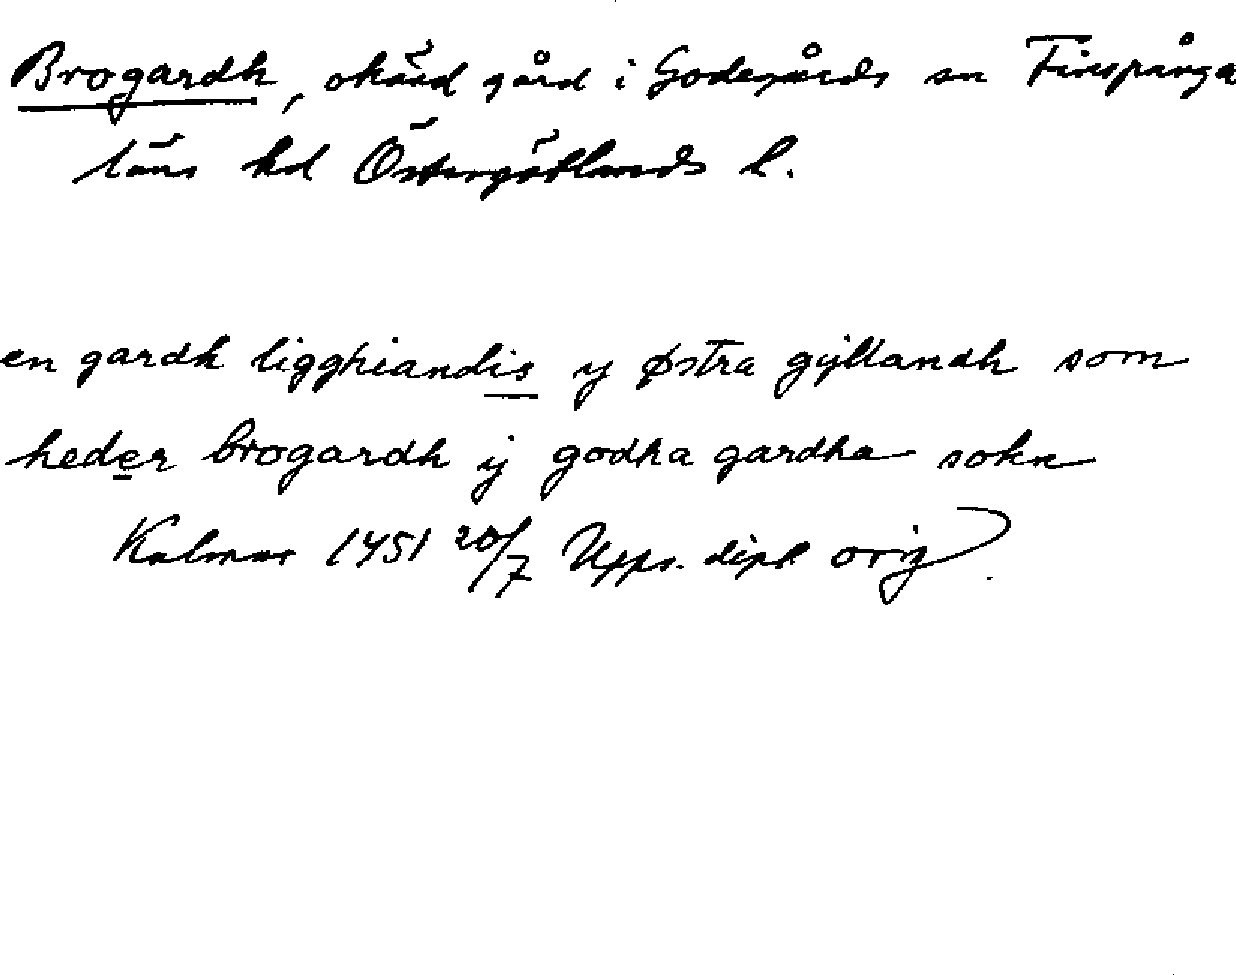 Brogardh, okänd gård i Godegårds sn Finspånga
läns hd Östergötlands l.
en gardh ligghiandis y østra gytlandh som
heder brogardh ij godha gardha sokn
Kalmar 1451 20/7 Upps. dipl orig.